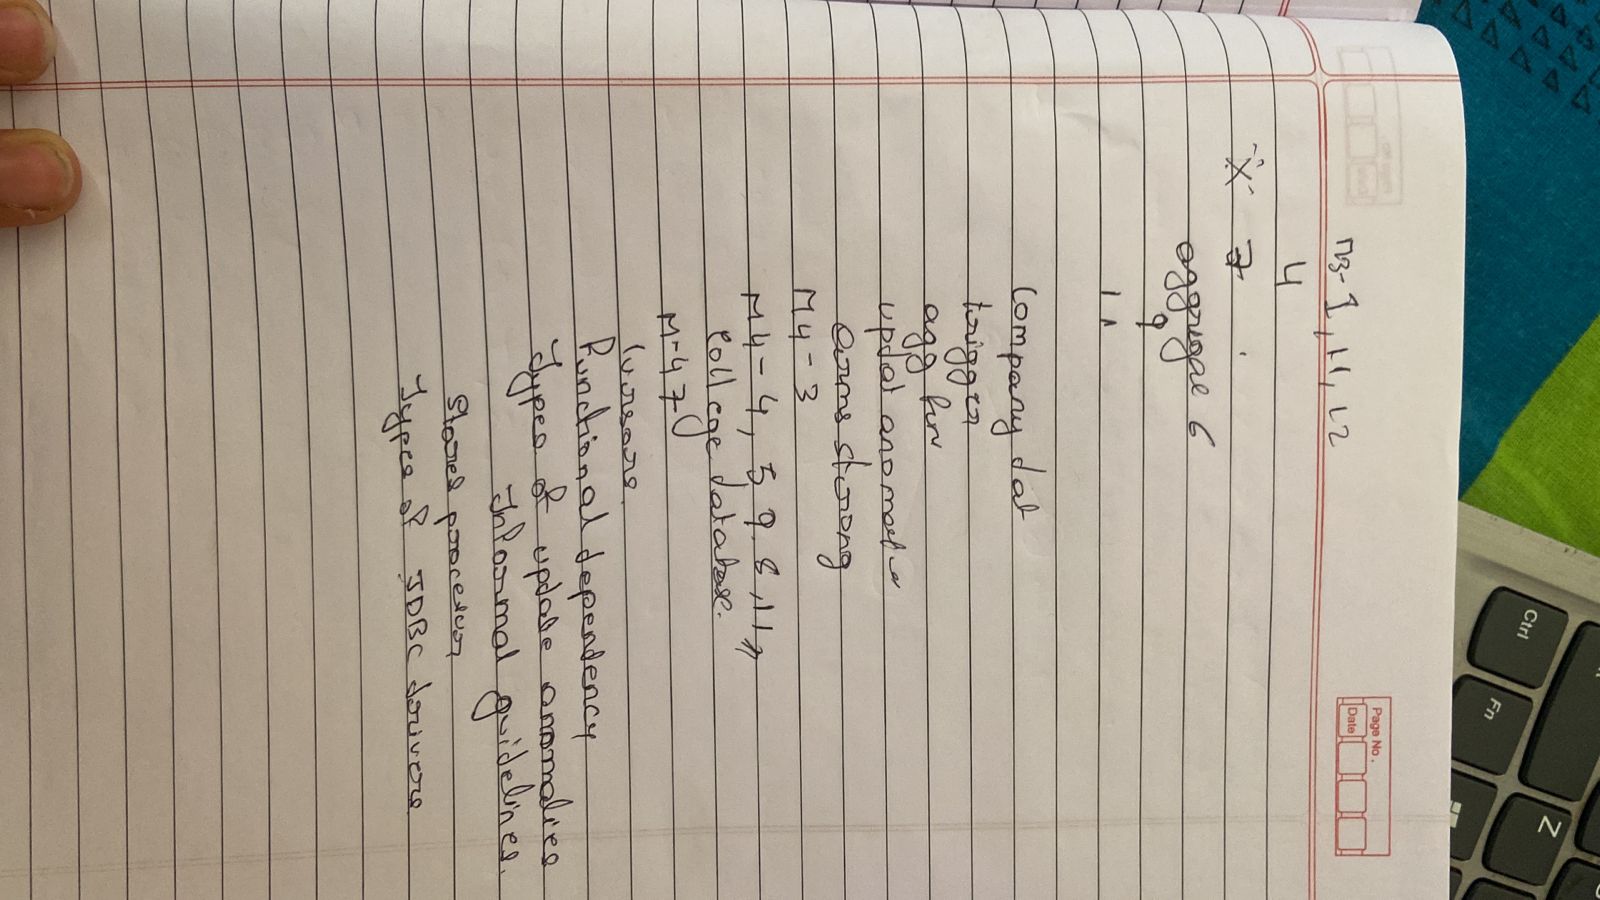 Page No.
Date
M3-1, 11, 12
4
X 7
aggregate 6
9
11
Company dat
trigger
agg fun
updat anomal
arms strong
M4-3
M4-4, 5 9, 8, 11,
College database.
M-47
Cursors.
Functional dependency
Types of update anomalies
Informal guidelines.
Stores
Types of JDBC drivers
Ctrl
Fn
Z